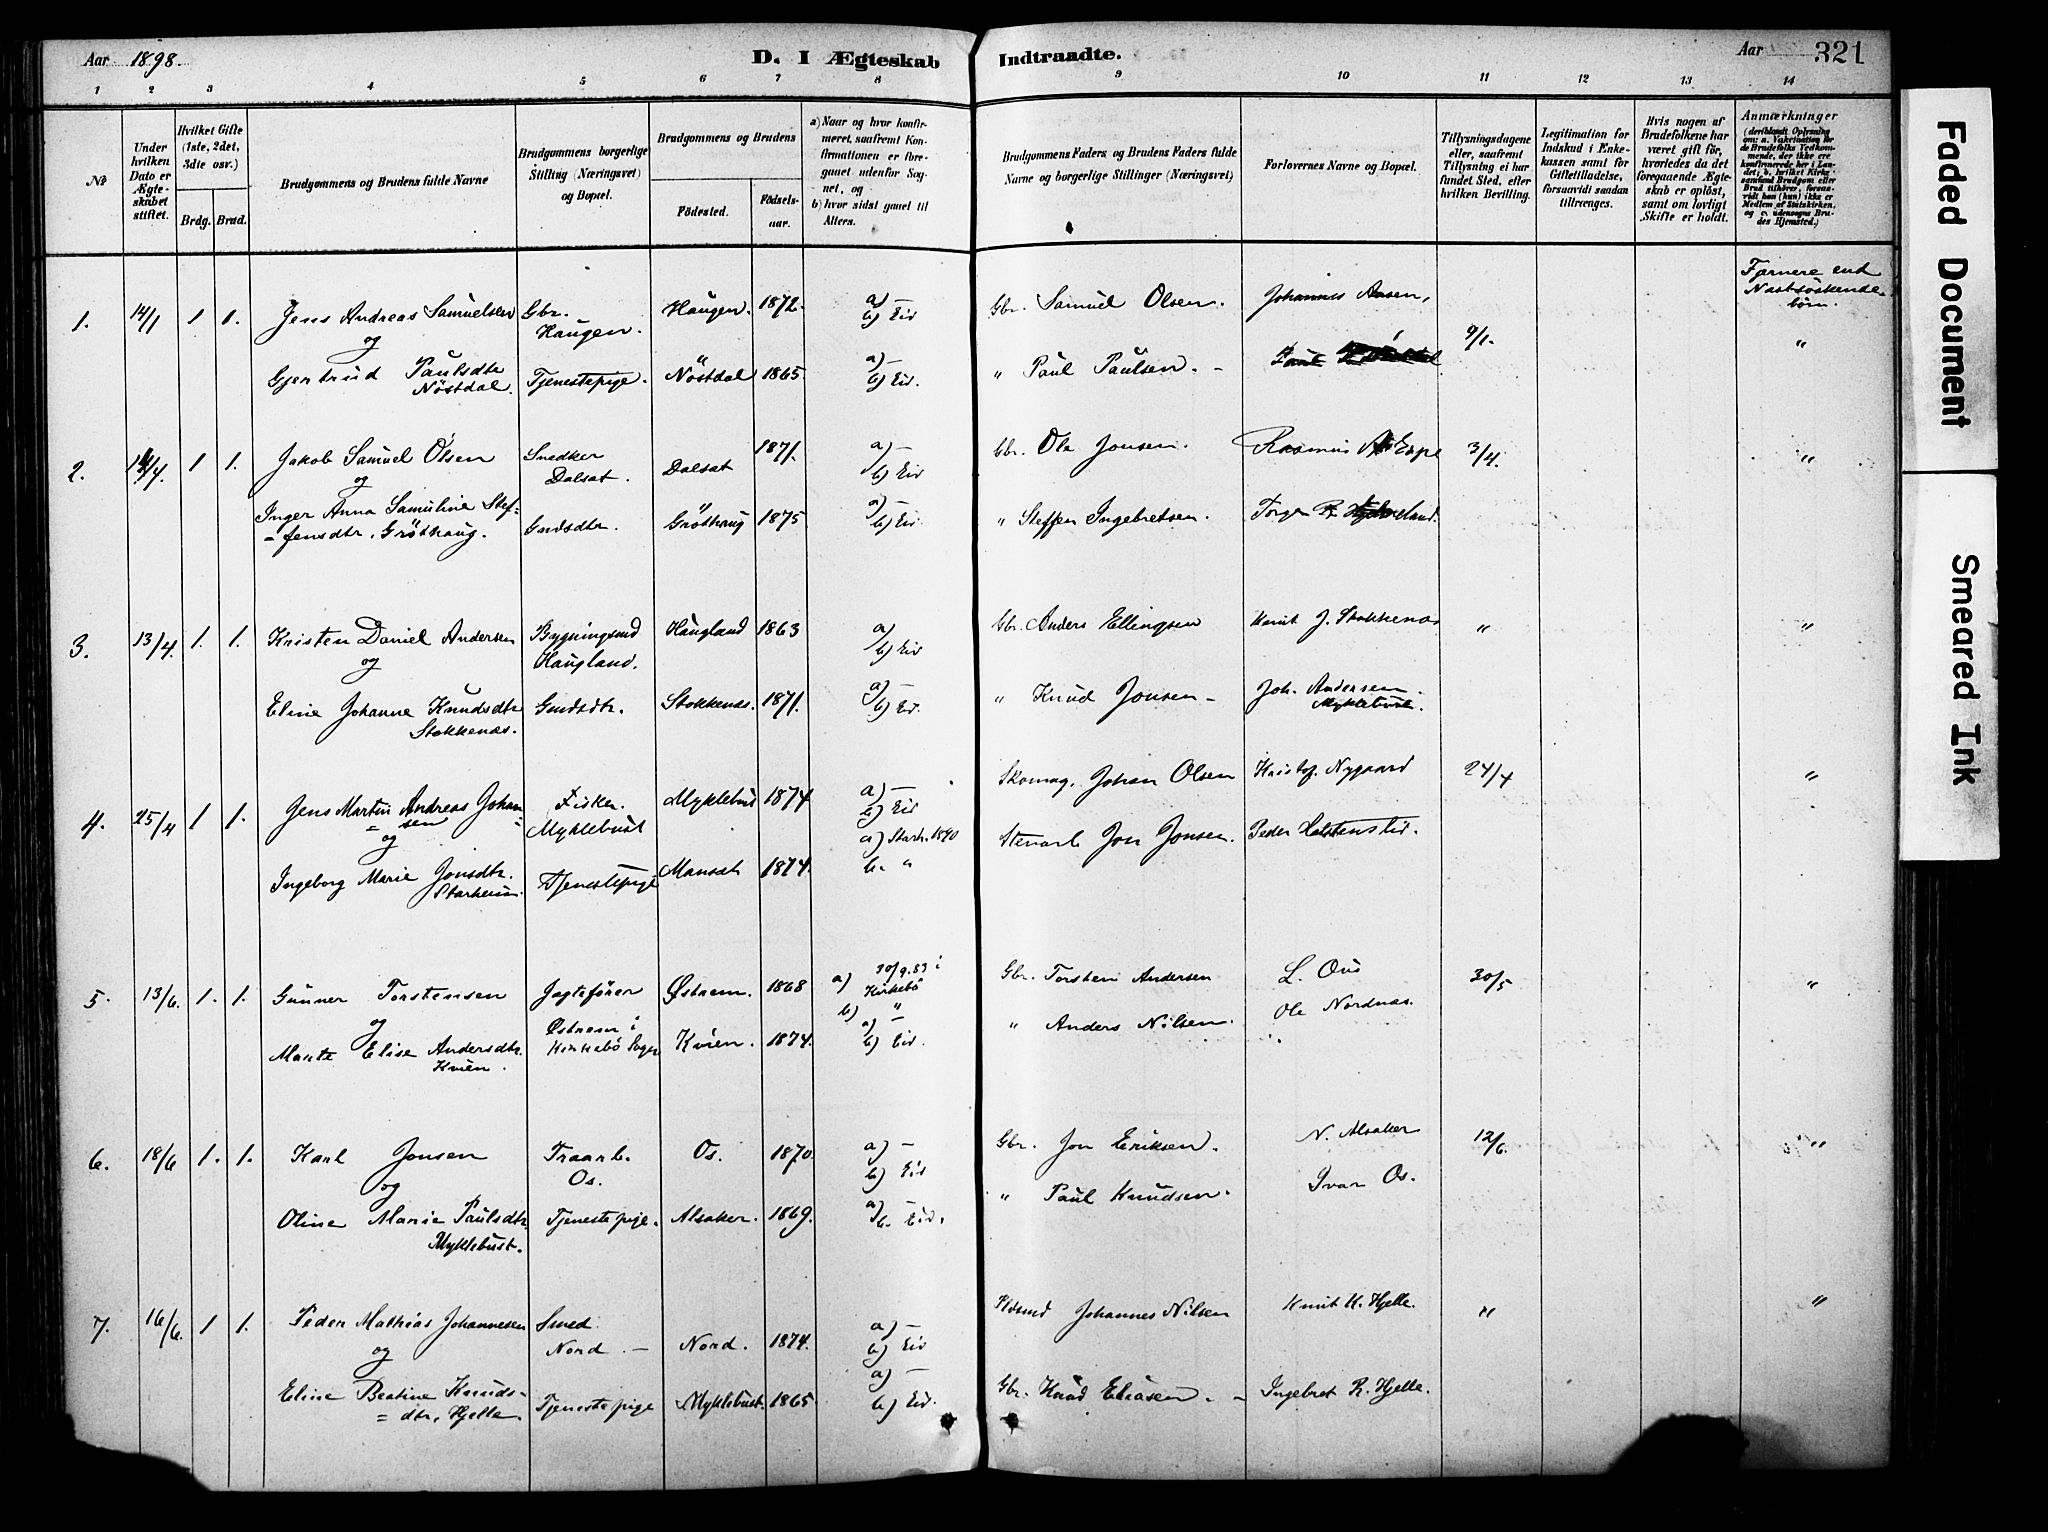 Aar 1898.
D. I Ægteskab Indtraadte.
Aar 321
1 2 3 4 5 6 7 8 9 10 11 12 13 14
No
Under hvilken Dato er Ægteskabet stiftet.
Hvilket Gifte (1ste, 2det, 3die osv.)
Brdg. Brud.
Brudgommens og Brudens fulde Navne
Brudgommens borgerlige Stilling (Næringsvei) og Bopæl.
Brudgommens og Brudens
Fødested.
Fødselsaar.
a) Naar og hvor konfirmeret, saafremt Konfirmationen er foregaaet udenfor Sognet, og
b) hvor sidst gaaet til Alters.
Brudgommens Faders og Brudens Faders fulde Navne og borgerlige Stillinger (Næringsvei)
Forlovernes Navne og Bopæl.
Tillysningsdagene eller, saafremt Tillysning ei har fundet Sted, efter hvilken Bevilling.
Legitimation for Indskud i Enkekassen samt for Giftetilladelse, forsaavidt saadan tiltrænges.
Hvis nogen af Brudefolkene har været gift før, hvorledes da det foregaaende Ægteskab er opløst, samt om lovligt Skifte er holdt.
Anmærkninger
(deriblandt Oplysning om: a. Vakcination for de Brudefolks Vedkommende, der ikke ere konfirmerede her i Landet; b. hvilket Kirkesamfund Brudgom eller Brud tilhører, foreaavidt han (hun) ikke er Medlem af Statskirken, og c. udensogns Brudes Hjemsted.)
1. 14/1 1 1. Jens Andreas Samuelsen Gbr. Haugen. Haugen. 1872. a) — b) Eid Gbr. Samuel Olsen. Johannes Aasen, 9/1. Fjernere end Næstsøskendebørn.
og
Gjertrud Paulsdtr Nöstdal. Tjenestepige. Nöstdal 1865 a) — b) Eid. " Paul Paulsen. — Paul "
2. 14/4. 1 1. Jakob Samuel Olsen Snedker Dalsat. Dalsat 1871. a) — b) Eid Gbr. Ole Jonsen. Rasmus A Espe 3/4. "
og
Inger Anna Samuline Steffensdtr. Gröthaug. Gmdsdtr. Gröthaug 1875 a) — b) Eid " Steffen Ingebretsen. Torger R.
3. 13/4. 1. 1. Kristen Daniel Andersen Bygningsmd Haugland. Haugland 1863 a) b) Eid Gbr. Anders Ellingsen Knut J. Stokkenes " "
og
Eline Johanne Knudsdtr Stokkenes. Gmdsdtr. Stokkenes. 1871. a) — b) Eid. " Knud Jonsen — Joh. Andersen Myklebust.
4. 25/4 1 1. Jens Martin Andreas Johansen Fisker. Myklebust Myklebust 1874. a) — b) Eid Skomag. Johan Olsen Kristof. Nygaard 24/4 "
og
Ingeborg Marie Jonsdtr. Starheim. Tjenestepige Mansat 1874. a) Starh. 1890 b. " Stenarb Jon Jonsen. Peder Holstenslid.
5. 13/6. 1. 1. Gunner Torstensen Jagtefører Østrem. 1868 a) 30/9.83 i Kirkebö b) " Gbr. Torsten Andersen L. Ous 30/5 "
og
Marte Elise Andersdtr. Kvien. Østrem i Kirkebö Sogn Kvien. 1874. a) — b) Eid. " Anders Nilsen. Ole Nordnæs.
6. 18/6 1. 1. Karl Jonsen Traarb. Os. Os. 1870. a) — b) Eid Gbr. Jon Eriksen. N. Alsaker 12/6. "
og
Oline Marie Paulsdtr. Myklebust. Tjenestepige. Alsaker. 1869. a) — b. Eid. " Paul Knudsen. Ivar Os.
7. 16/6. 1 1. Peder Mathias Johannesen Smed Nord. — Nord. 1874. a) — b) Eid Johannes Nilsen Knut K. Hjelle. " "
og
Eline Beatine Knudsdtr. Hjelle Tjenestepige Myklebust 1865 a) — b) Eid. Gbr. Knud Eliasen. — Ingebret R. Hjelle.
Faded Document
Smeared Ink